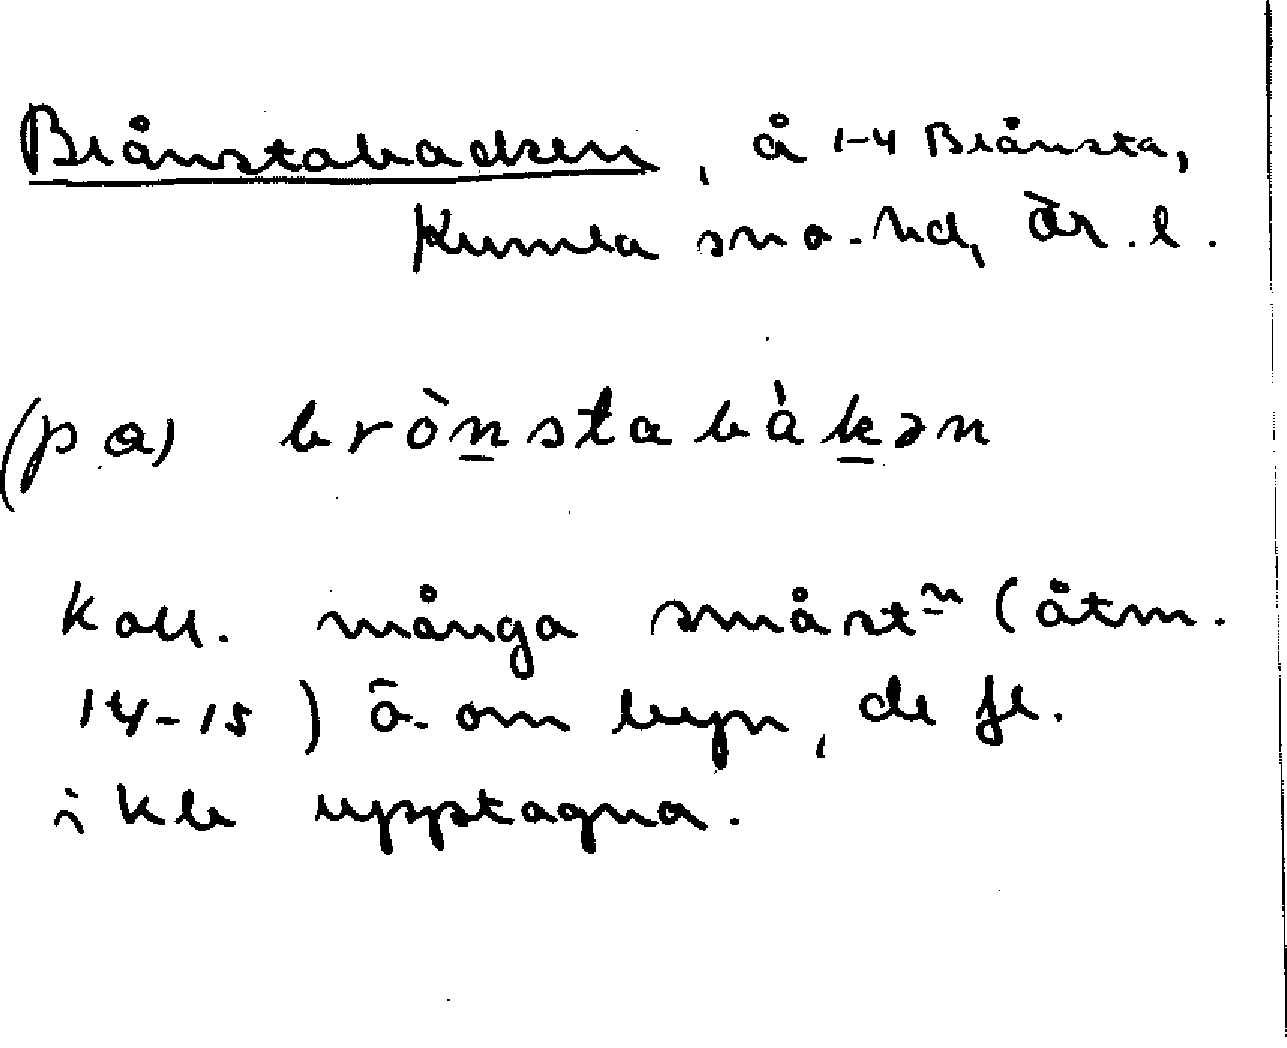 Brånstabacken, å 1-4 Brånsta,
Kumla sn o. hd, Ör. l.
(pa) brònstabàkən
Kall. många småstn (åtm.
14-15) ö. om byn, de fl.
ikke upptagna.